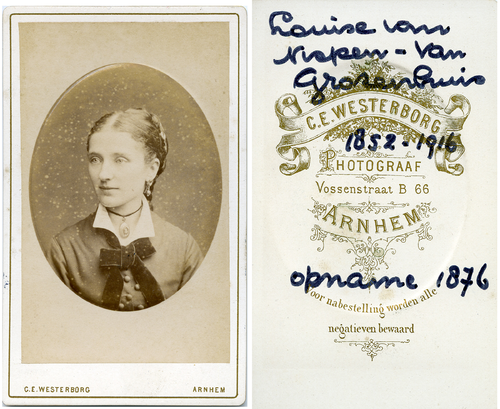 C.E. WESTERBORG ARNHEM
Louise van
Nispen - Van
Grotenhuis
C.E. WESTERBORG
1852-1916
PHOTOGRAAF
Vossenstraat B 66
ARNHEM
opname 1876
Voor nabestelling worden alle
negatieven bewaard